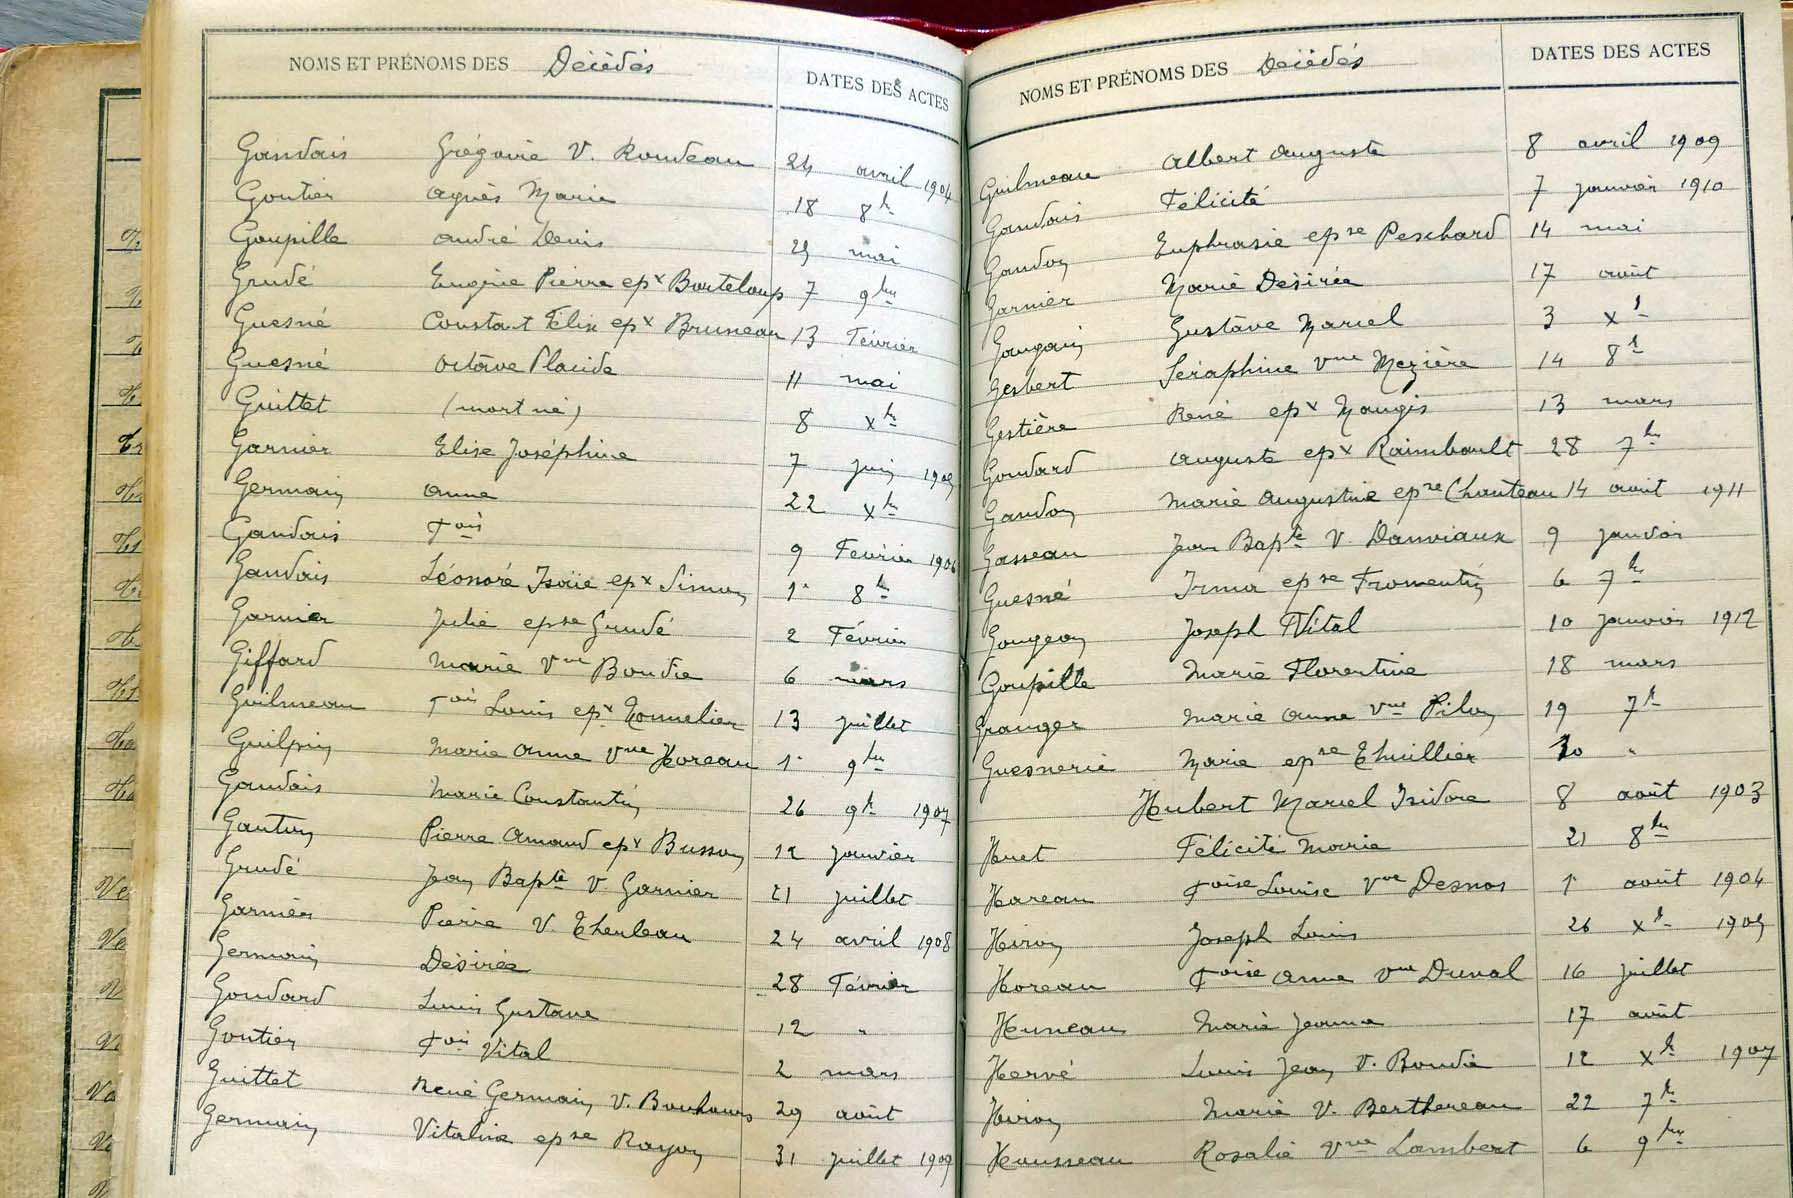 NOMS ET PRÉNOMS DES Décédés DATES DES ACTES
Gandais Grégoire V. Rondeau 24 avril 1904
Goutier Agnès Marie 18 8bre
Goupille André Denis 29 mai
Grudé Eugène Pierre epx Bouteloup 7 9bre
Guesné Constant Félix epx Bruneau 13 Février
Guesné Octave Placide 11 mai
Guittet (mort né) 8 xbre
Garnier Elise Joséphine 7 juin 1905
Germain Anne 22 xbre
Gandais Fois 9 Février 1906
Gandais Léonoré Isaïe epx Simon 1er 8bre
Garnier Julie epse Grudé 2 Février
Giffard Marie Vve Boudie 6 mars
Guilmeau Fois Louis epx Tonnelier 13 juillet
Guilpin Marie Anne Vve Horeau 1er 9bre
Gandais Marie Constantin 26 9bre 1907
Pierre Amand epx Busson 12 janvier
Grudé Jean Bapte V. Garnier 21 juillet
Garnier Pierre V. Thenleau 24 avril 1908
Germain Désirée 28 Février
Goudard Louis Gustave 12 "
Goutier Fois Vital 2 mars
Guittet René Germain V. Bouhours 29 août
Germain Vitaline epse Rayon 31 juillet 1909
NOMS ET PRÉNOMS DES Décédés DATES DES ACTES
Guilmeau Albert Auguste 8 avril 1909
Gandais Félicité 7 janvier 1910
Gandon Euphrasie epse Peschard 14 mai
Garnier Marie Désirée 17 août
Gougain Gustave Marcel 3 xbre
Gesbert Séraphine Vve Mezière 14 8bre
Gestière René epx Maugis 13 mars
Goudard Auguste epx Raimbault 28 7bre
Gandon Marie Augustine epse Chanteau 14 août 1911
Gasseau Jean Bapte V. Danviaux 9 janvier
Guesné Irma epse Fromentin 6 7bre
Gougeon Joseph Vital 10 janvier 1912
Goupille Marie Florentine 18 mars
Granger Marie Anne Vve Pilon 19 7bre
Guesnerie Marie epse Thuillier 30 "
Hubert Marcel Isidore 8 août 1903
Huet Félicité Marie 21 8bre
Hareau Foise Louise Vve Desnos 1er août 1904
Hiron Joseph Louis 26 xbre 1905
Horeau Foise Anne Vve Duval 16 juillet
Huneau Marie Jeanne 17 août
Hervé Louis Jean V. Boudié 12 xbre 1907
Hiron Marie V. Berthereau 22 7bre
Housseau Rosalie Vve Lambert 6 9bre